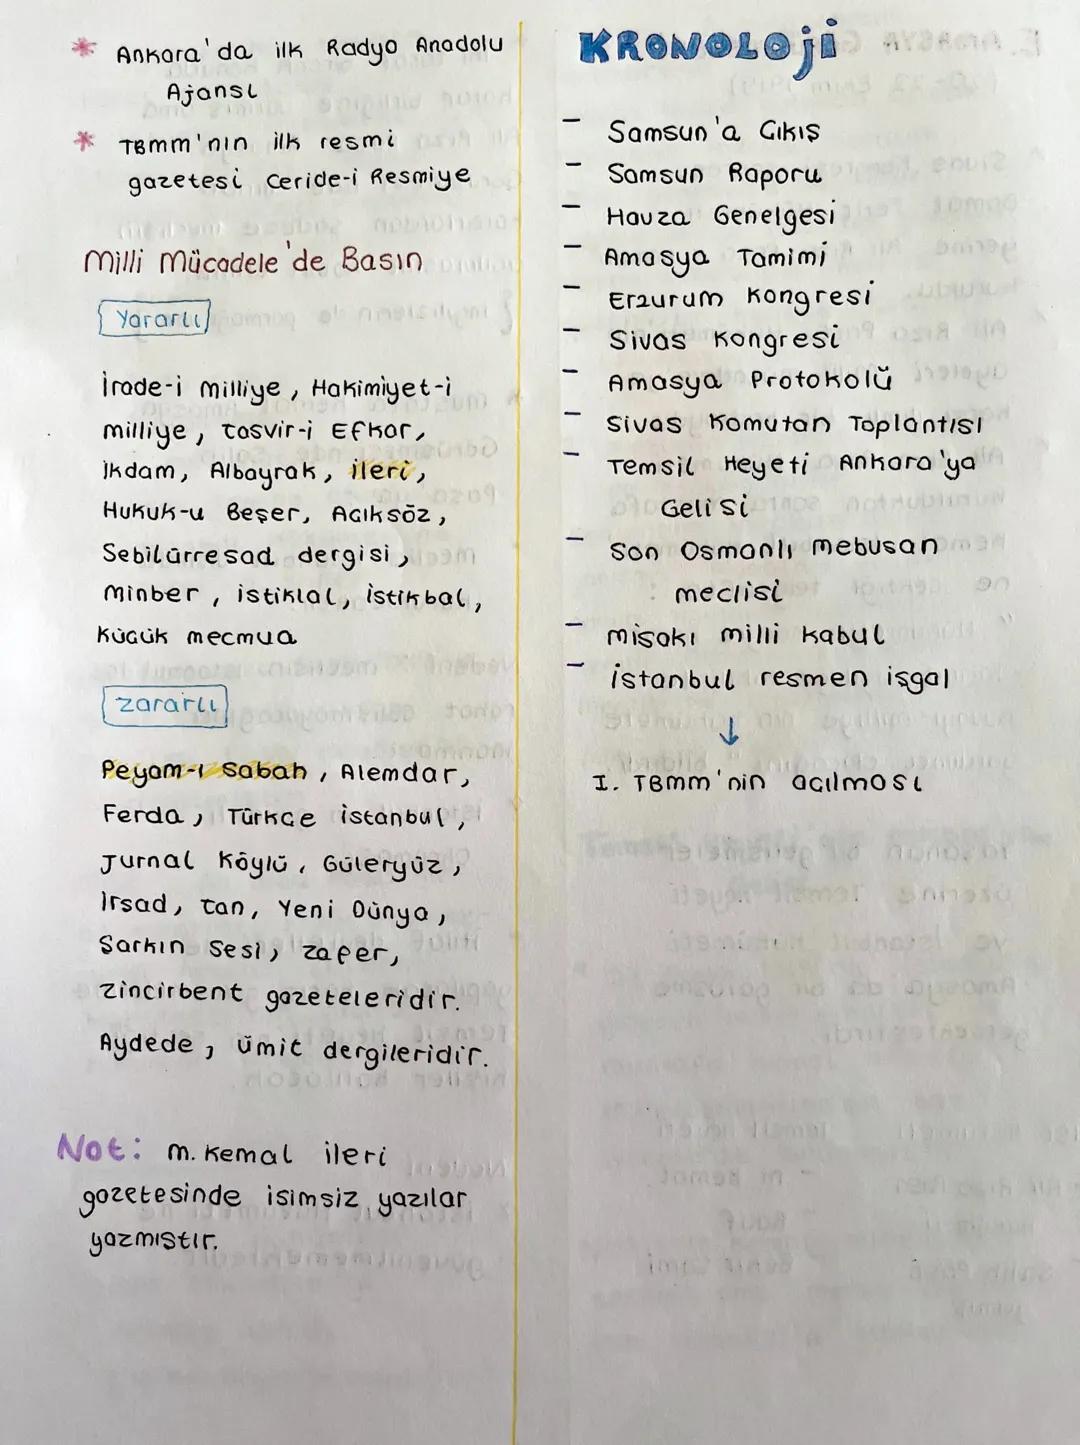 * Ankara'da ilk Radyo Anadolu
Ajansı
* TBMM'nın ilk resmi
gazetesi Ceride-i Resmiye
Milli Mücadele'de Basın
Yararlı
İrade-i Milliye, Hakimiyet-i
Milliye, Tasvir-i Efkar,
İkdam, Albayrak, ileri,
Hukuk-u Beşer, Acıksöz,
Sebilürresad dergisi,
Minber, istiklal, istikbal,
Kücük mecmua
Zararlı
Peyam-ı Sabah, Alemdar,
Ferda, Türkce istanbul,
Jurnal Köylü, Güleryüz,
İrsad, Tan, Yeni Dünya,
Sarkın Sesi, Zafer,
Zincirbent gazeteleridir.
Aydede, ümit dergileridir.
Not: M. Kemal ileri
gazetesinde isimsiz yazılar
yazmıstır.
KRONOLOji
- Samsun'a Cıkış
- Samsun Raporu
- Havza Genelgesi
- Amasya Tamimi
- Erzurum Kongresi
- Sivas Kongresi
- Amasya Protokolü
- Sivas Komutan Toplantısı
- Temsil Heyeti Ankara'ya
Gelisi
- Son Osmanlı Mebusan
meclisi
- misakı milli kabul
- istanbul resmen işgal
↓
I. TBMM'nin acılması